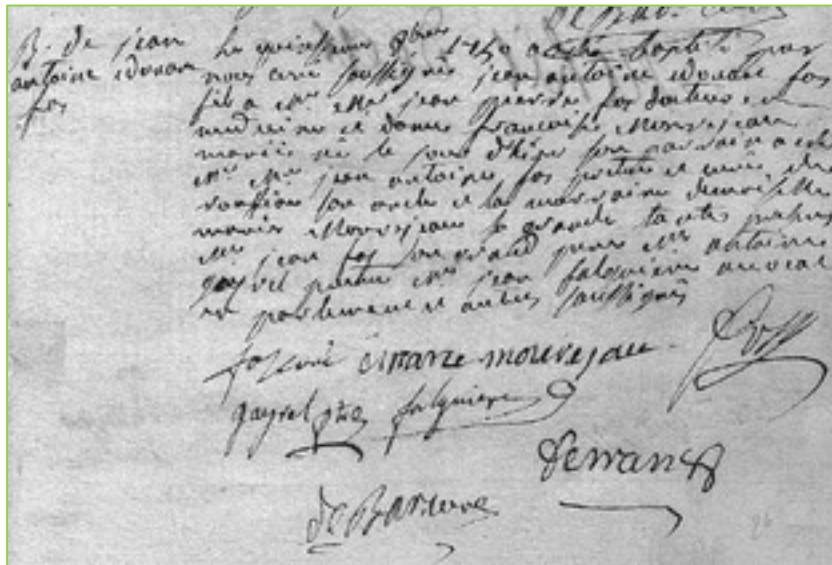 B. de jean
antoine edouar
fos
Le quinsieme 8bre 1750 a été baptisé par
nous curé soussignés jean antoine edouar fos
fils a Mr Me jean pierre fos docteur en
medecine et dame francoise Mourejeau
mariés né le jour d'hier son parrain a été
Mr Me jean antoine fos pretre et curé de
son oncle et la marraine demoiselle
marie Mourejeau sa grande tante presens
Mr jean fos son grand pere Mr antoine
gayrel pretre Mr jean falguiere avocat
en parlement et autres soussignés
fos curé marie mourejeau
gayrel ptre falguiere
de Barderne